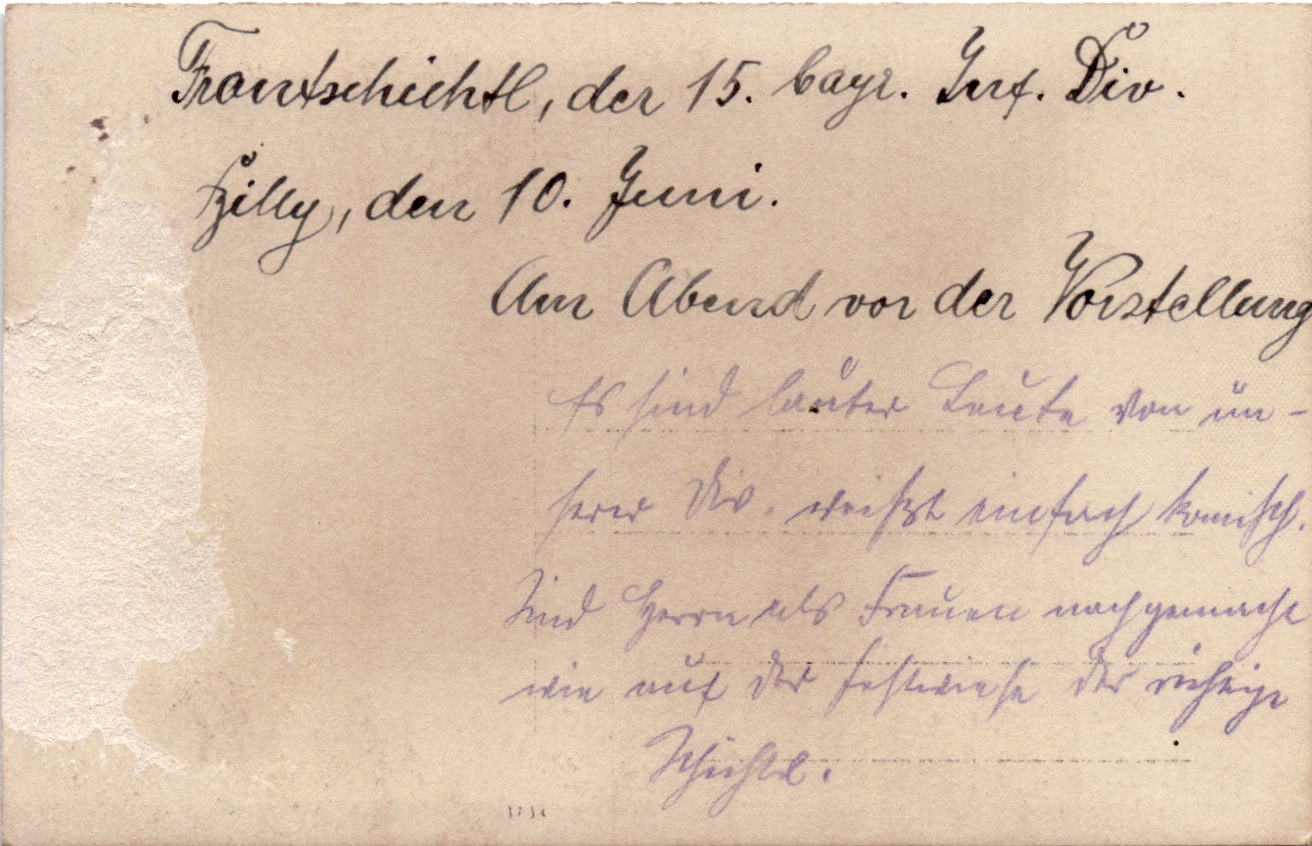 Frontschichtl, der 15. bayr. Inf. Div.
Gilly, den 10. Juni.
Am Abend vor der Vorstellung
Es sind lauter Leute von un-
serer Div. weißt einfach komisch.
Sind Herrn als Frauen nachgemacht
wie auf der Festwiese der richtige
Schichtl.